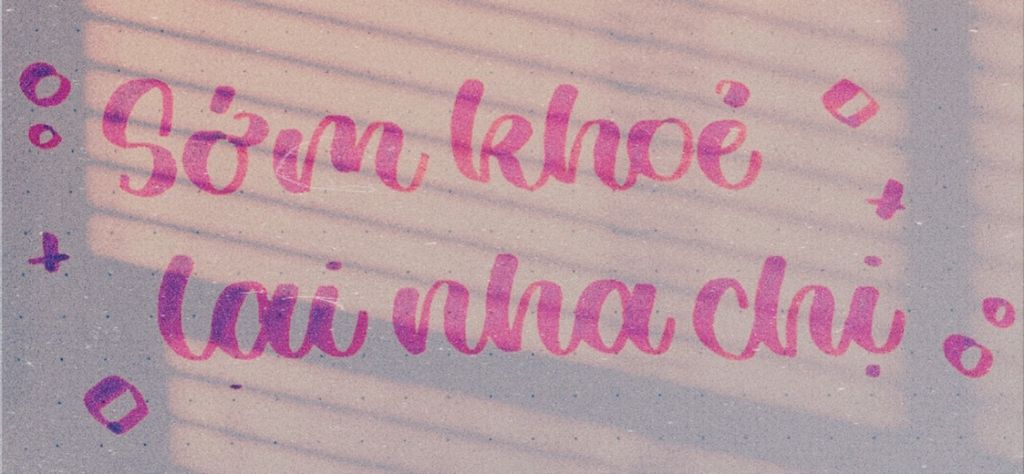 Sớm khoẻ
lại nha chị